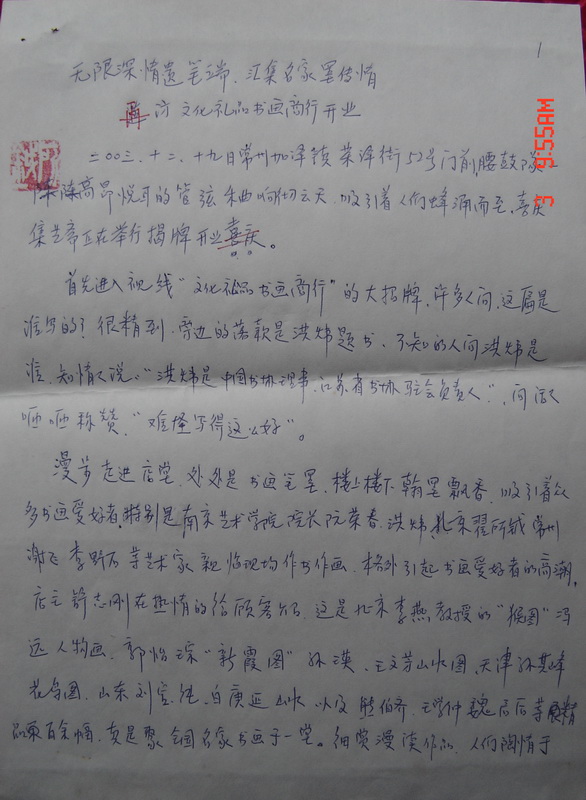 1
无限深情遗笔端、汇集名家墨传情
文化礼品书画商行开业
二00三、十二、十九日常州加泽镇菜泽街52号门前腰鼓队
阵阵高昂悦耳的管弦 和曲响彻云天、吸引着人们蜂涌而至、喜庆
集 正在举行揭牌开业喜庆。
首先进入视线“文化礼品书画商行”的大招牌、许多人问、这属是
谁写的？很精到、旁边的落款是洪炜题书、不知的人问洪炜是
谁、知情人说、“洪炜是中国书协理事、江苏省书协驻会负责人”、问
咂咂称赞、“难怪写得这么好”。
漫步走进店堂、处处是书画笔墨、楼上楼下翰墨飘香、吸引着众
多书画爱好者、特别是南京艺术学院院长阮荣春、洪炜、北京 常州
谢飞 李野石等艺术家亲临现场作书作画、格外引起书画爱好者的高潮、
店主 志刚在热情的给顾客介 、这是北京李燕教授的“猴图”冯
远人物画、郭怡孮“新霞图”孙瑛、王文芳山水图、天津孙其峰
花鸟图、山东刘宝纯、白庚延山水以及熊伯齐、王学仲 魏启后等 精
品 百余幅、真是聚全国名家书画于一堂。细赏漫读作品、人们陶情于
3 9:55AM